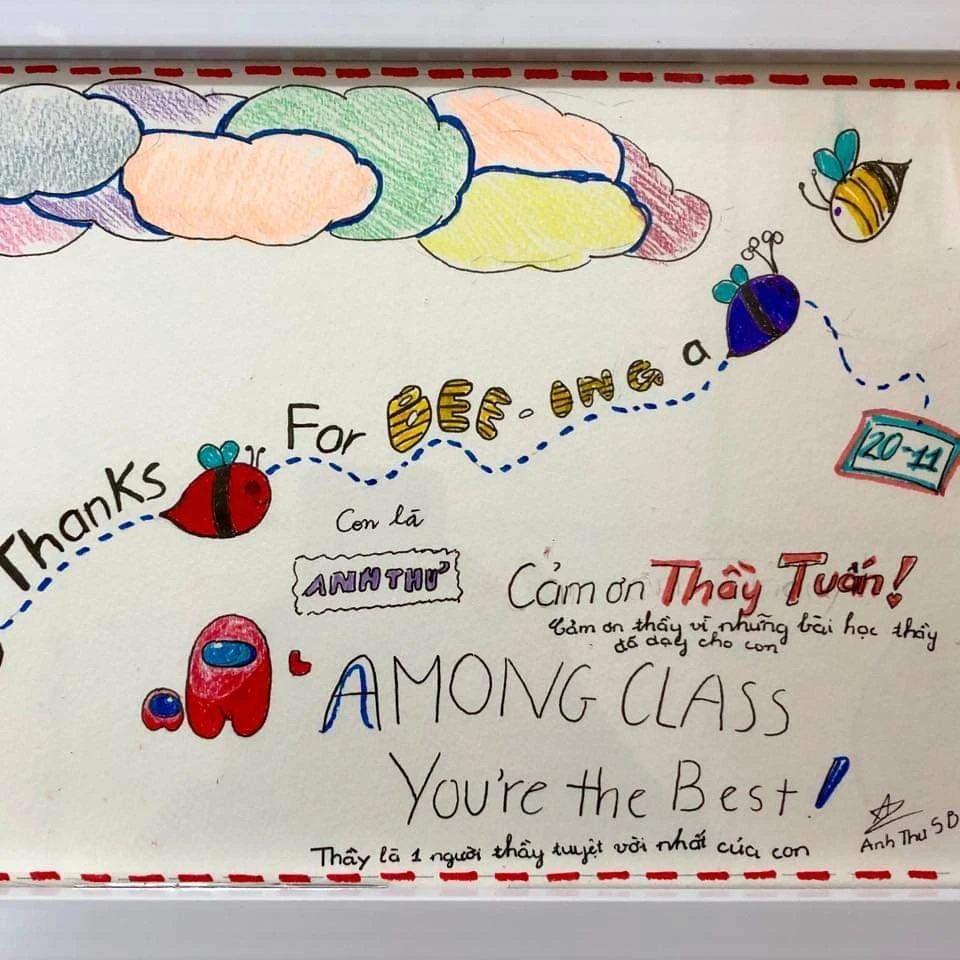 Thanks For BEE-ING a
20-11
Con là
ANH THƯ
Cảm ơn Thầy Tuấn!
Cảm ơn thầy vì những bài học thầy
đã dạy cho con
AMONG CLASS
You're the Best!
Thầy là 1 người thầy tuyệt vời nhất của con
Anh Thư 5B